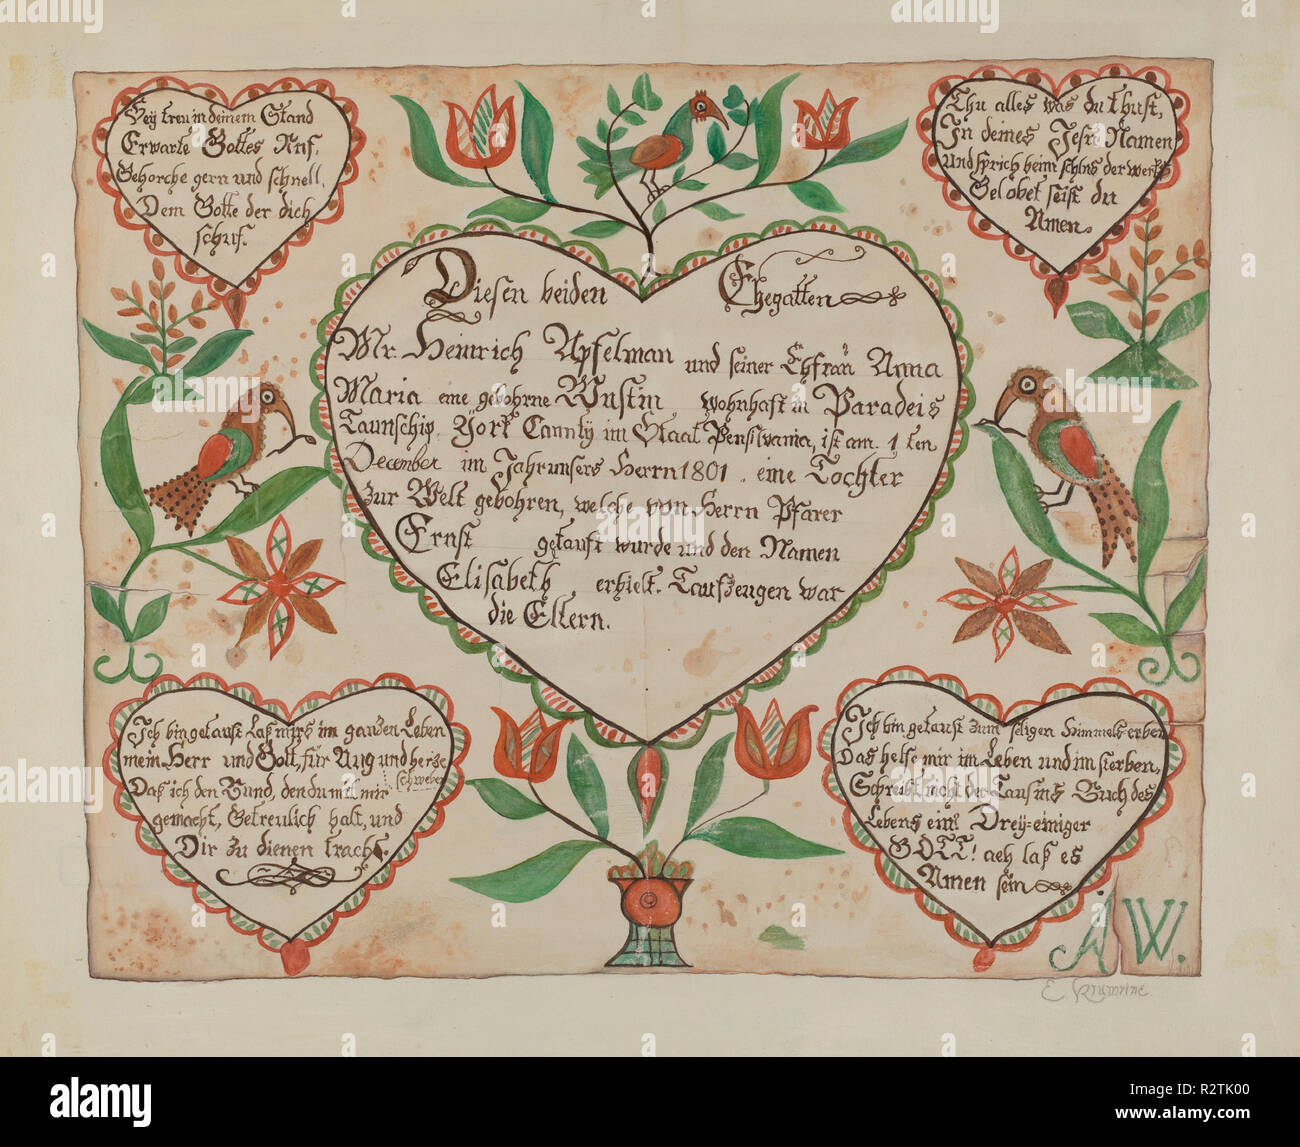 Sey treu in deinem Stand
Erwarte Gottes Ruf,
Gehorche gern und schnell,
Dem Gotte der dich
schuf.
Thu alles was du thust,
In deines Jesu Namen
Und sprich beim schlus der werks
Gelobet seist du
Amen.
Diesen beiden Ehegatten
Mr. Heinrich Apfelman und seiner Ehfrau Anna
Maria eine gebohrne Wustin, wohnhaft in Paradeis
Taunschip, York Caunty im Staat Pensilvania, ist am 1ten
December im Jahr unsers Herrn 1801. eine Tochter
zur Welt gebohren, welche von Herrn Pfarer
Ernst getauft wurde und den Namen
Elisabeth, erhielt. Taufzeugen war
die Eltern.
Ich bin getauft Laß mirs im ganzen Leben
mein Herr und Gott, für Aug und herze
schweben
Daß ich den Bund, den du mit mir
gemacht, Getreulich halt, und
Dir zu dienen tracht.
Ich bin getauft zum seligen Himmels erben
Das helfe mir im Leben und im sterben,
Schreibt mich der Tauf ins Buch des
Lebens ein! Drey=einiger
GOTT! ach laß es
Amen sein
A W.
E. Krumrine
alamy
Image ID: R2TK00
www.alamy.com